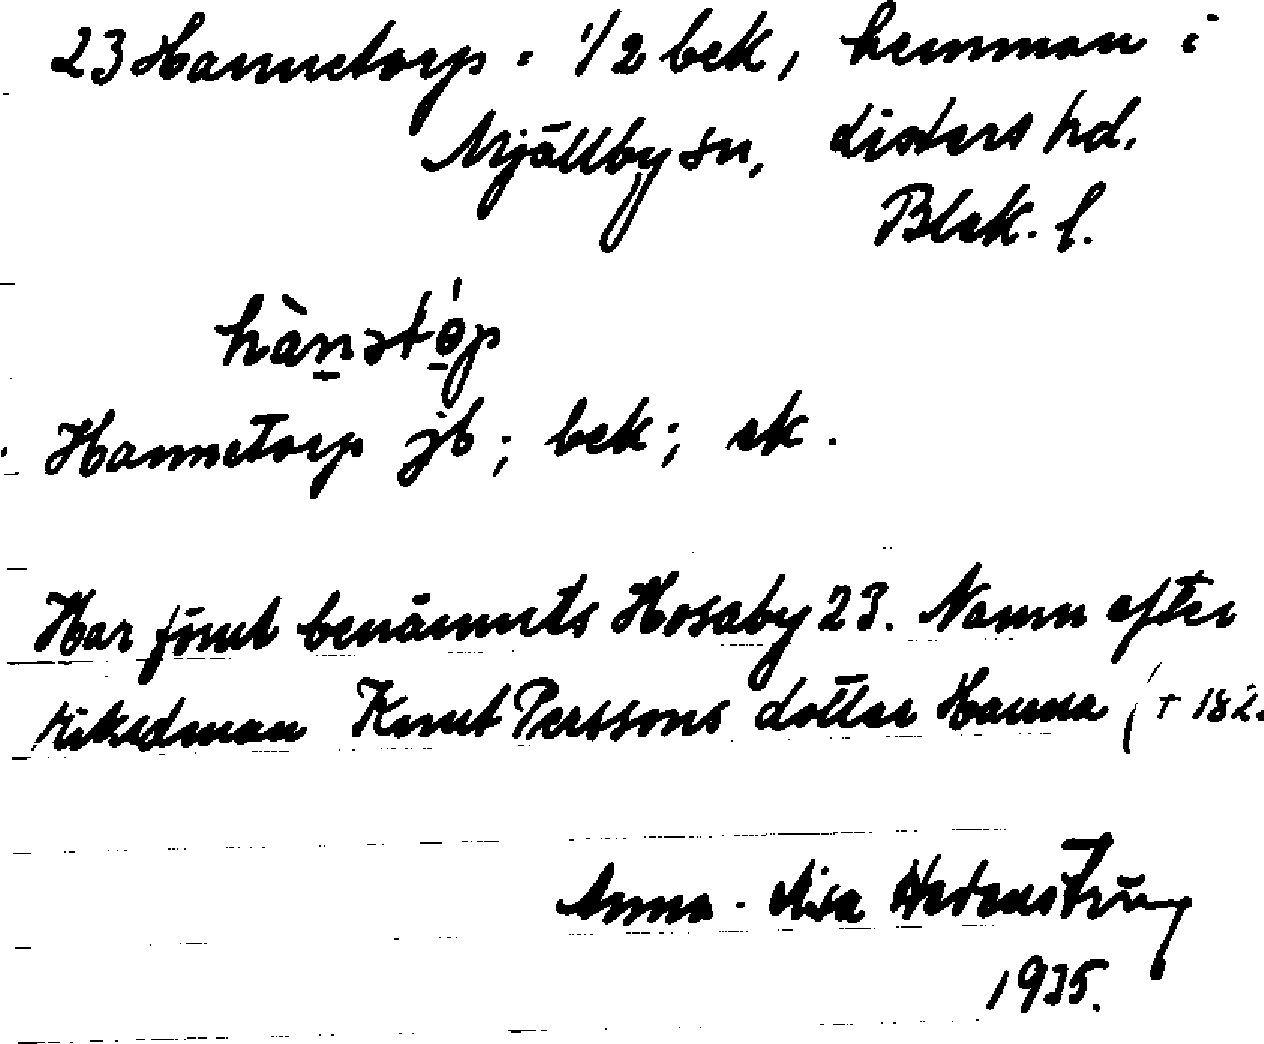 23 Hannetorp. 1/2 bek, hemman i
Mjällby sn, Listers hd.
Blek. l.
hànstóp
Hannetorp jb; bek; sk.
Har förut benämnts Hosaby 23. Namn efter
riksdman Knut Perssons dotter Hanna († 182.
Anna-Lisa Hedenstring
1935.